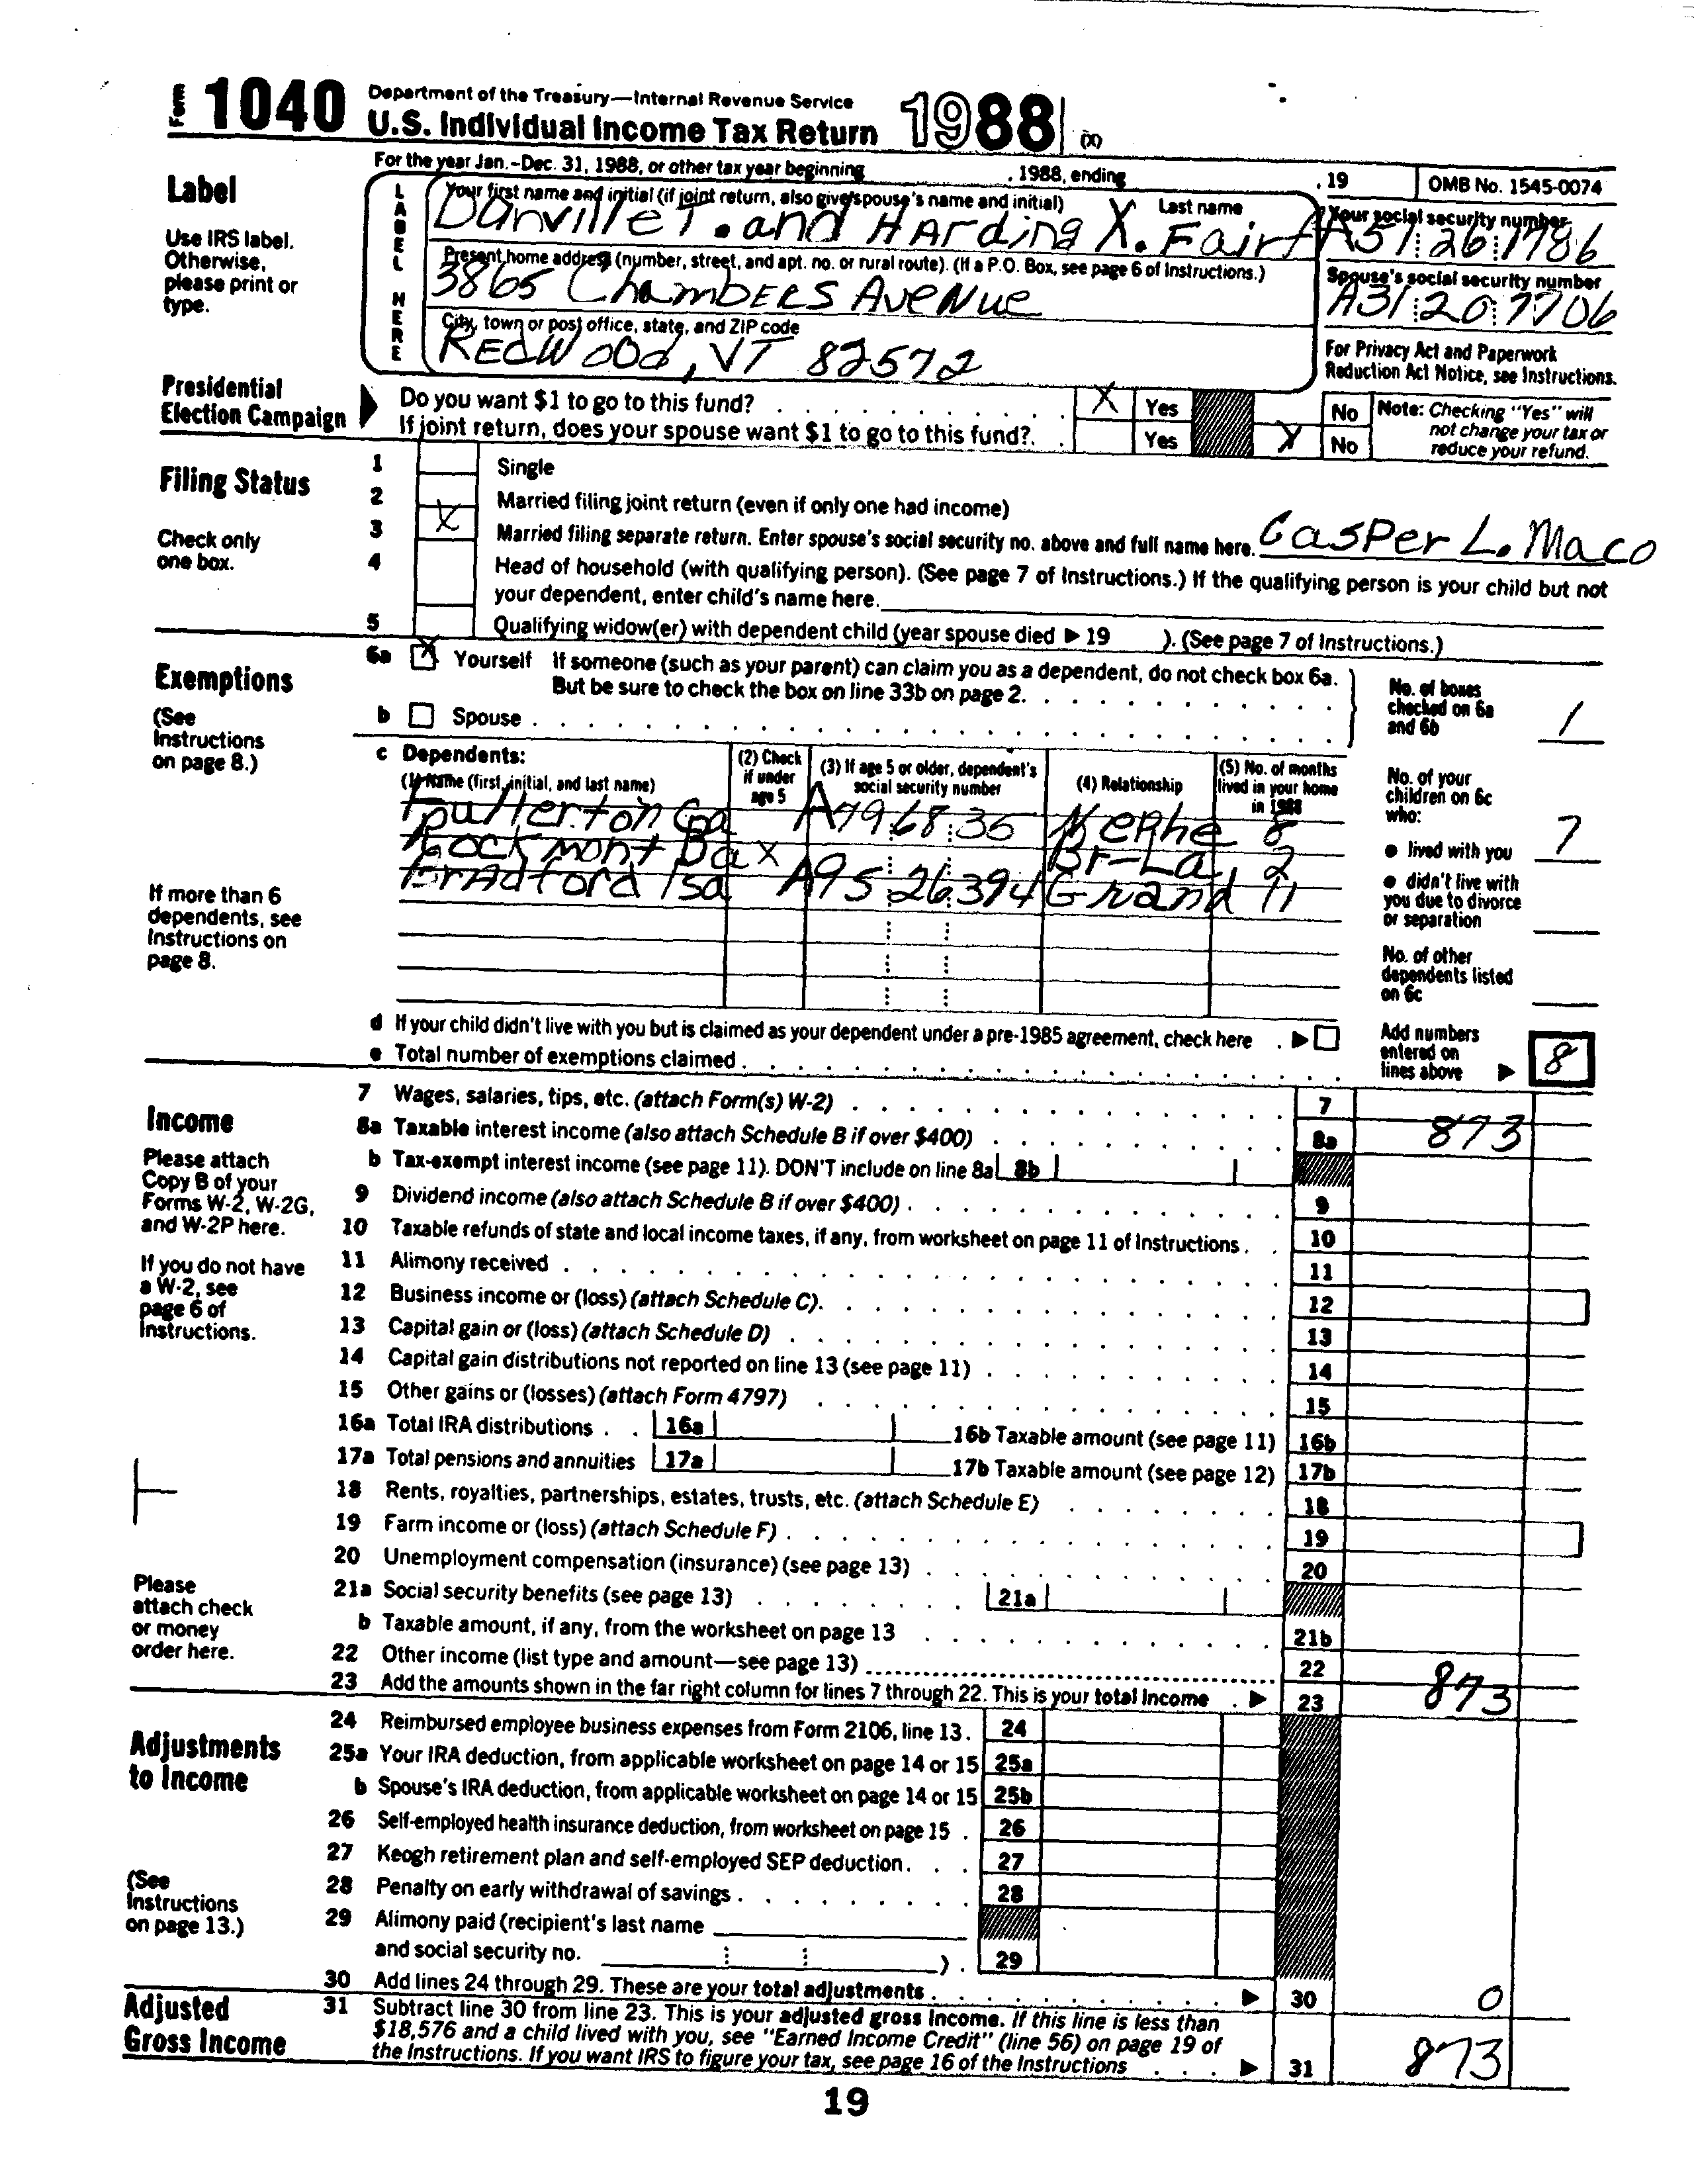 Form 1040 Department of the Treasury—Internal Revenue Service
U.S. Individual Income Tax Return 1988 (X)
For the year Jan.–Dec. 31, 1988, or other tax year beginning , 1988, ending , 19 OMB No. 1545-0074
Label
Use IRS label.
Otherwise,
please print or
type.
LABEL HERE
Your first name and initial (if joint return, also give spouse's name and initial) Last name
Danville T. and HArding X. Fairf
Your social security number
A51 26 1786
Present home address (number, street, and apt. no. or rural route). (If a P.O. Box, see page 6 of Instructions.)
3865 ChamBERS AveNue
Spouse's social security number
A31 20 7706
City, town or post office, state, and ZIP code
REdWood, VT 82572
For Privacy Act and Paperwork
Reduction Act Notice, see Instructions.
Presidential
Election Campaign
Do you want $1 to go to this fund? X Yes No
If joint return, does your spouse want $1 to go to this fund? Yes X No
Note: Checking "Yes" will
not change your tax or
reduce your refund.
Filing Status
Check only
one box.
1 Single
2 Married filing joint return (even if only one had income)
3 X Married filing separate return. Enter spouse's social security no. above and full name here. CasPer L. Maco
4 Head of household (with qualifying person). (See page 7 of Instructions.) If the qualifying person is your child but not
your dependent, enter child's name here.
5 Qualifying widow(er) with dependent child (year spouse died ▶ 19 ). (See page 7 of Instructions.)
Exemptions
(See
Instructions
on page 8.)
6a X Yourself If someone (such as your parent) can claim you as a dependent, do not check box 6a.
But be sure to check the box on line 33b on page 2.
b Spouse
No. of boxes
checked on 6a
and 6b 1
c Dependents:
(1) Name (first, initial, and last name)
(2) Check
if under
age 5
(3) If age 5 or older, dependent's
social security number
(4) Relationship
(5) No. of months
lived in your home
in 1988
Fullerton Ga A79 68 35 Nephe 8
Rockmont Da X Br-La 2
Bradford Isa A95 26 394 Grand 11
If more than 6
dependents, see
Instructions on
page 8.
No. of your
children on 6c
who:
● lived with you 7
● didn't live with
you due to divorce
or separation
No. of other
dependents listed
on 6c
d If your child didn't live with you but is claimed as your dependent under a pre-1985 agreement, check here ▶
e Total number of exemptions claimed
Add numbers
entered on
lines above ▶ 8
Income
Please attach
Copy B of your
Forms W-2, W-2G,
and W-2P here.
If you do not have
a W-2, see
page 6 of
Instructions.
7 Wages, salaries, tips, etc. (attach Form(s) W-2) 7
8a Taxable interest income (also attach Schedule B if over $400) 8a 873
b Tax-exempt interest income (see page 11). DON'T include on line 8a 8b
9 Dividend income (also attach Schedule B if over $400) 9
10 Taxable refunds of state and local income taxes, if any, from worksheet on page 11 of Instructions 10
11 Alimony received 11
12 Business income or (loss) (attach Schedule C) 12
13 Capital gain or (loss) (attach Schedule D) 13
14 Capital gain distributions not reported on line 13 (see page 11) 14
15 Other gains or (losses) (attach Form 4797) 15
16a Total IRA distributions 16a 16b Taxable amount (see page 11) 16b
17a Total pensions and annuities 17a 17b Taxable amount (see page 12) 17b
18 Rents, royalties, partnerships, estates, trusts, etc. (attach Schedule E) 18
19 Farm income or (loss) (attach Schedule F) 19
20 Unemployment compensation (insurance) (see page 13) 20
21a Social security benefits (see page 13) 21a
b Taxable amount, if any, from the worksheet on page 13 21b
22 Other income (list type and amount—see page 13) 22
23 Add the amounts shown in the far right column for lines 7 through 22. This is your total income ▶ 23 873
Please
attach check
or money
order here.
Adjustments
to Income
(See
Instructions
on page 13.)
24 Reimbursed employee business expenses from Form 2106, line 13. 24
25a Your IRA deduction, from applicable worksheet on page 14 or 15 25a
b Spouse's IRA deduction, from applicable worksheet on page 14 or 15 25b
26 Self-employed health insurance deduction, from worksheet on page 15 26
27 Keogh retirement plan and self-employed SEP deduction 27
28 Penalty on early withdrawal of savings 28
29 Alimony paid (recipient's last name
and social security no. ). 29
30 Add lines 24 through 29. These are your total adjustments ▶ 30 0
Adjusted
Gross Income
31 Subtract line 30 from line 23. This is your adjusted gross income. If this line is less than
$18,576 and a child lived with you, see "Earned Income Credit" (line 56) on page 19 of
the Instructions. If you want IRS to figure your tax, see page 16 of the Instructions ▶ 31 873
19